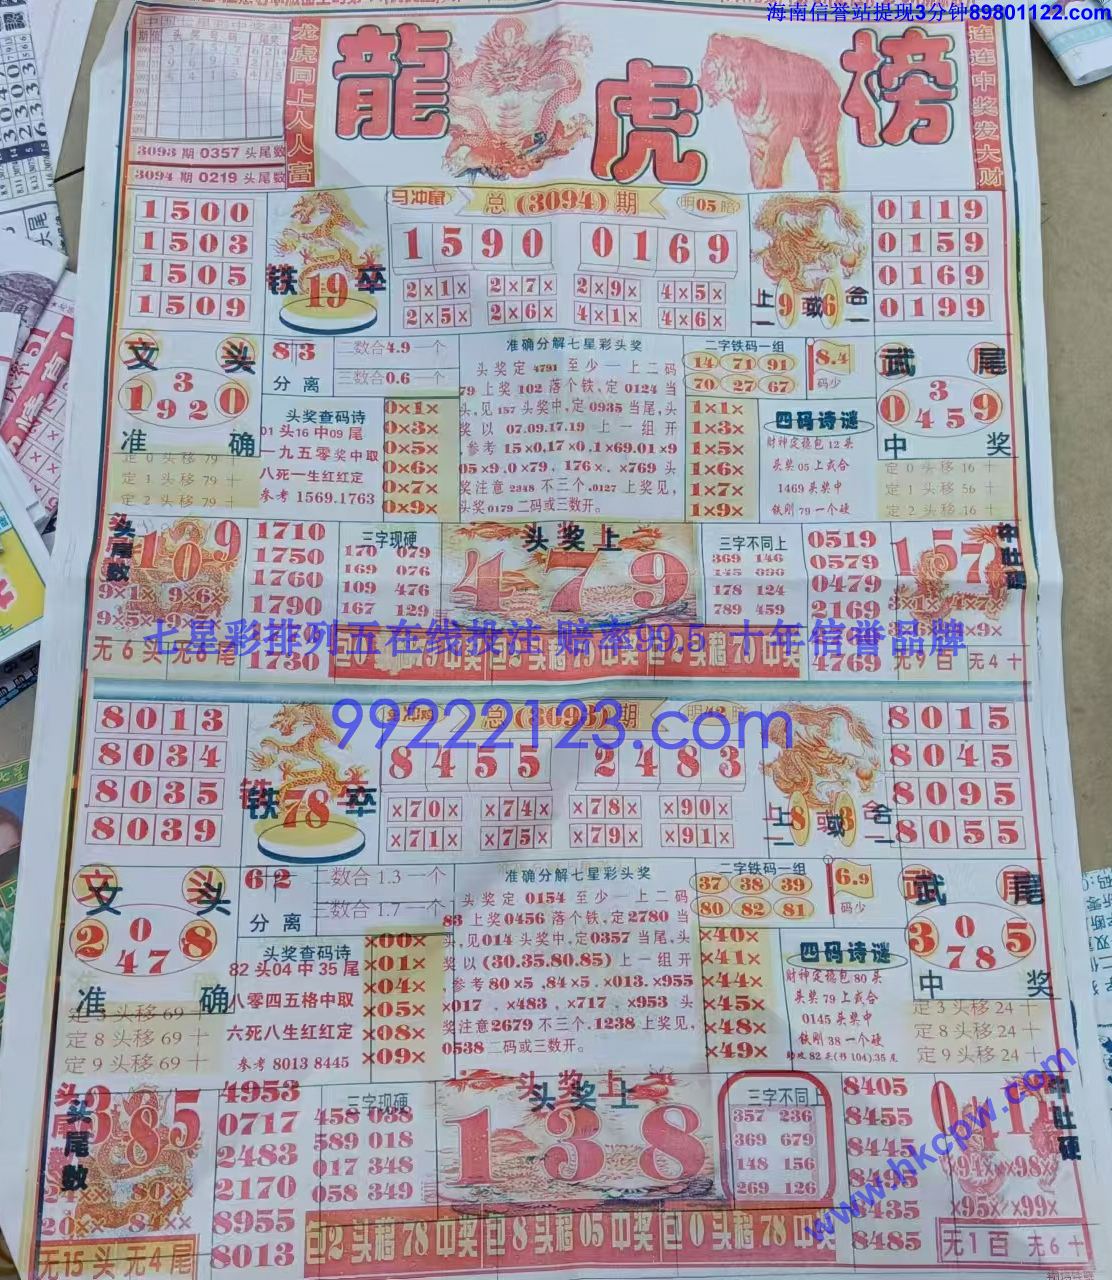 海南信誉站提现3分钟89801122.com
龍虎榜
龙虎同上人人富
连连中奖发大财
3093期0357头尾数
3094期0219头尾数
马冲鼠 总(3094)期 明05暗
1500
1503
1505
1509
铁19卒
1590 0169
2×1× 2×7× 2×9× 4×5×
2×5× 2×6× 4×1× 4×6×
上一9或6合一
0119
0159
0169
0199
文头
3
1920
准确
定0头移79十
定1头移79十
定2头移79十
83分离
二数合4.9一个
三数合0.6一个
头奖查码诗
01头16中09尾
一九五零奖中取
八死一生红红定
参考1569.1763
0×1×
0×3×
0×5×
0×6×
0×7×
0×9×
准确分解七星彩头奖
头奖定4791至少一上二码
79上奖102落个铁,定0124当
头,见157头奖中,定0935当尾,头
奖以07.09.17.19上一组开
参考15×0,17×0.1×69.01×9
05×9.0×79,176×.×769头
奖注意2348不三个.0127上奖见,
头奖0179二码或三数开。
二字铁码一组
14 71 91
70 27 67
8.4
码少
1×1×
1×3×
1×5×
1×6×
1×7×
1×9×
四码诗谜
财神定稳包12头
头奖05上或合
1469头奖中
铁刚79一个硬
武尾
3
0459
中奖
定0头移16十
定1头移56十
定2头移16十
头尾数
109
9×1× 9×6×
无6头无8尾
1710
1750
1760
1790
1730
三字现硬
170 079
169 076
109 476
167 129
头奖上
479
三字不同上
369 146
178 124
789 459
0519
0579
0479
2169
4769
157
中肚硬
3×1× 4×7×
无9百 无4十
七星彩排列五在线投注 赔率99.5 十年信誉品牌
99222123.com
总(3093)期
8013
8034
8035
8039
铁78卒
8455 2483
×70× ×74× ×78× ×90×
×71× ×75× ×79× ×91×
上一8或3合一
8015
8045
8095
8055
文头
0
2478
准确
定5头移69十
定8头移69十
定9头移69十
62分离
二数合1.3一个
三数合1.7一个
头奖查码诗
82头04中35尾
八零四五格中取
六死八生红红定
参考8013 8445
×00×
×01×
×04×
×05×
×08×
×09×
准确分解七星彩头奖
头奖定0154至少一上二码
83上奖0456落个铁,定2780当
头,见014头奖中,定0357当尾,头
奖以(30.35.80.85)上一组开
,参考80×5,84×5.×013.×955
×017.×483,×717.×953头
奖注意2679不三个.1238上奖见,
0538二码或三数开。
二字铁码一组
37 38 39
80 82 81
6.9
码少
×40×
×41×
×44×
×45×
×48×
×49×
四码诗谜
财神定稳包80头
头奖79上或合
0145头奖中
铁刚38一个硬
武尾
0
3785
中奖
定3头移24十
定8头移24十
定9头移24十
头尾数
385
20×× 84××
无15头无4尾
4953
0717
2483
2170
8955
8013
三字现硬
458 038
589 018
017 348
058 349
头奖上
138
三字不同上
357 236
369 679
148 156
269 126
8405
8455
8445
8495
8435
8485
中肚硬
×94× ×98×
×95× ×99×
无1百 无6十
包2头稽78中奖 包8头稽05中奖 包0头稽78中奖
www.hkcpw.com